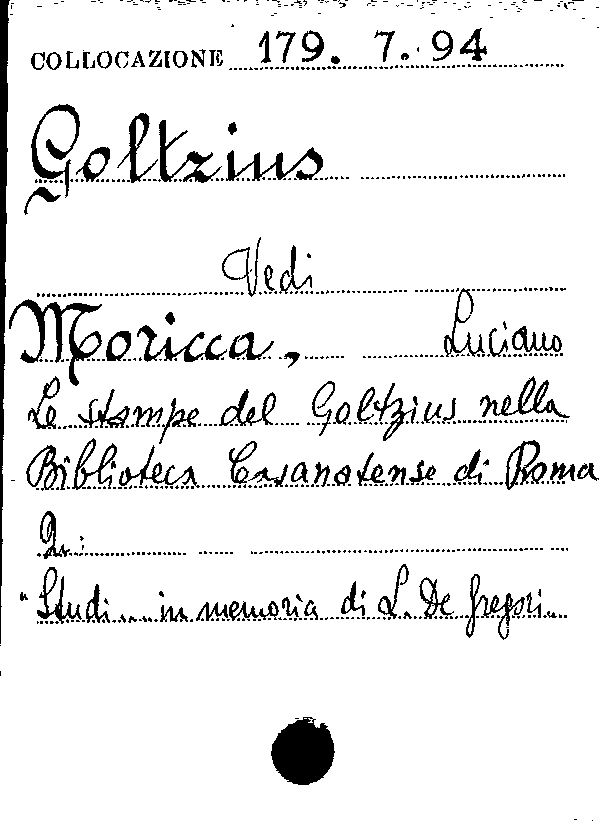 COLLOCAZIONE 179. 7. 94
Goltzius
Vedi
Moricca, Luciano
Le stampe del Goltzius nella
Biblioteca Casanatense di Roma
In:
"Studi... in memoria di L. De Gregori..